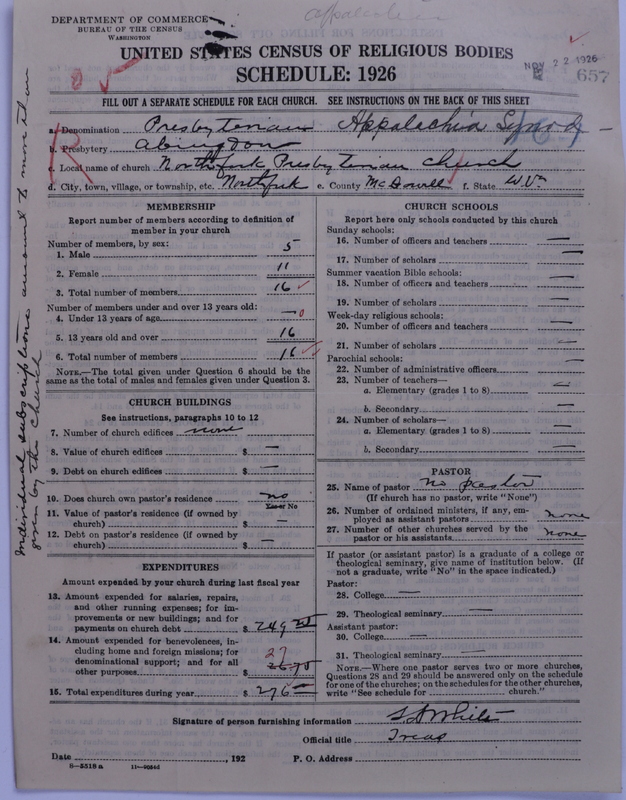 Appalachia
DEPARTMENT OF COMMERCE
BUREAU OF THE CENSUS
WASHINGTON
UNITED STATES CENSUS OF RELIGIOUS BODIES
SCHEDULE: 1926
NOV 22 1926
657
FILL OUT A SEPARATE SCHEDULE FOR EACH CHURCH. SEE INSTRUCTIONS ON THE BACK OF THIS SHEET
a. Denomination Presbyterian Appalachia Synod
b. Presbytery Abingdon
c. Local name of church Northfork Presbyterian church
d. City, town, village, or township, etc. Northfork e. County McDowell f. State W.Va
MEMBERSHIP
Report number of members according to definition of member in your church
Number of members, by sex:
1. Male 5
2. Female 11
3. Total number of members 16
Number of members under and over 13 years old:
4. Under 13 years of age — 0
5. 13 years old and over 16
6. Total number of members 16
NOTE.—The total given under Question 6 should be the
same as the total of males and females given under Question 3.
CHURCH BUILDINGS
See instructions, paragraphs 10 to 12
7. Number of church edifices none
8. Value of church edifices $ —
9. Debt on church edifices $ —
10. Does church own pastor's residence no
Yes or No
11. Value of pastor's residence (if owned by
church) $ —
12. Debt on pastor's residence (if owned by
church) $ —
EXPENDITURES
Amount expended by your church during last fiscal year
13. Amount expended for salaries, repairs,
and other running expenses; for im-
provements or new buildings; and for
payments on church debt $ 249 25
14. Amount expended for benevolences, in-
cluding home and foreign missions; for
denominational support; and for all
other purposes $ 27 26.75
15. Total expenditures during year $ 276 —
CHURCH SCHOOLS
Report here only schools conducted by this church
Sunday schools:
16. Number of officers and teachers —
17. Number of scholars —
Summer vacation Bible schools:
18. Number of officers and teachers —
19. Number of scholars —
Week-day religious schools:
20. Number of officers and teachers —
21. Number of scholars —
Parochial schools:
22. Number of administrative officers —
23. Number of teachers—
a. Elementary (grades 1 to 8) —
b. Secondary —
24. Number of scholars—
a. Elementary (grades 1 to 8) —
b. Secondary —
PASTOR
25. Name of pastor no pastor
(If church has no pastor, write "None")
26. Number of ordained ministers, if any, em-
ployed as assistant pastors none
27. Number of other churches served by the
pastor or his assistants none
If pastor (or assistant pastor) is a graduate of a college or
theological seminary, give name of institution below. (If
not a graduate, write "No" in the space indicated.)
Pastor:
28. College —
29. Theological seminary —
Assistant pastor:
30. College —
31. Theological seminary —
NOTE.—Where one pastor serves two or more churches,
Questions 28 and 29 should be answered only on the schedule
for one of the churches; on the schedules for the other churches,
write "See schedule for church."
Signature of person furnishing information
Official title Treas
Date , 192 P. O. Address
8—5518 a
Individual subscriptions amount to more than
given by this church